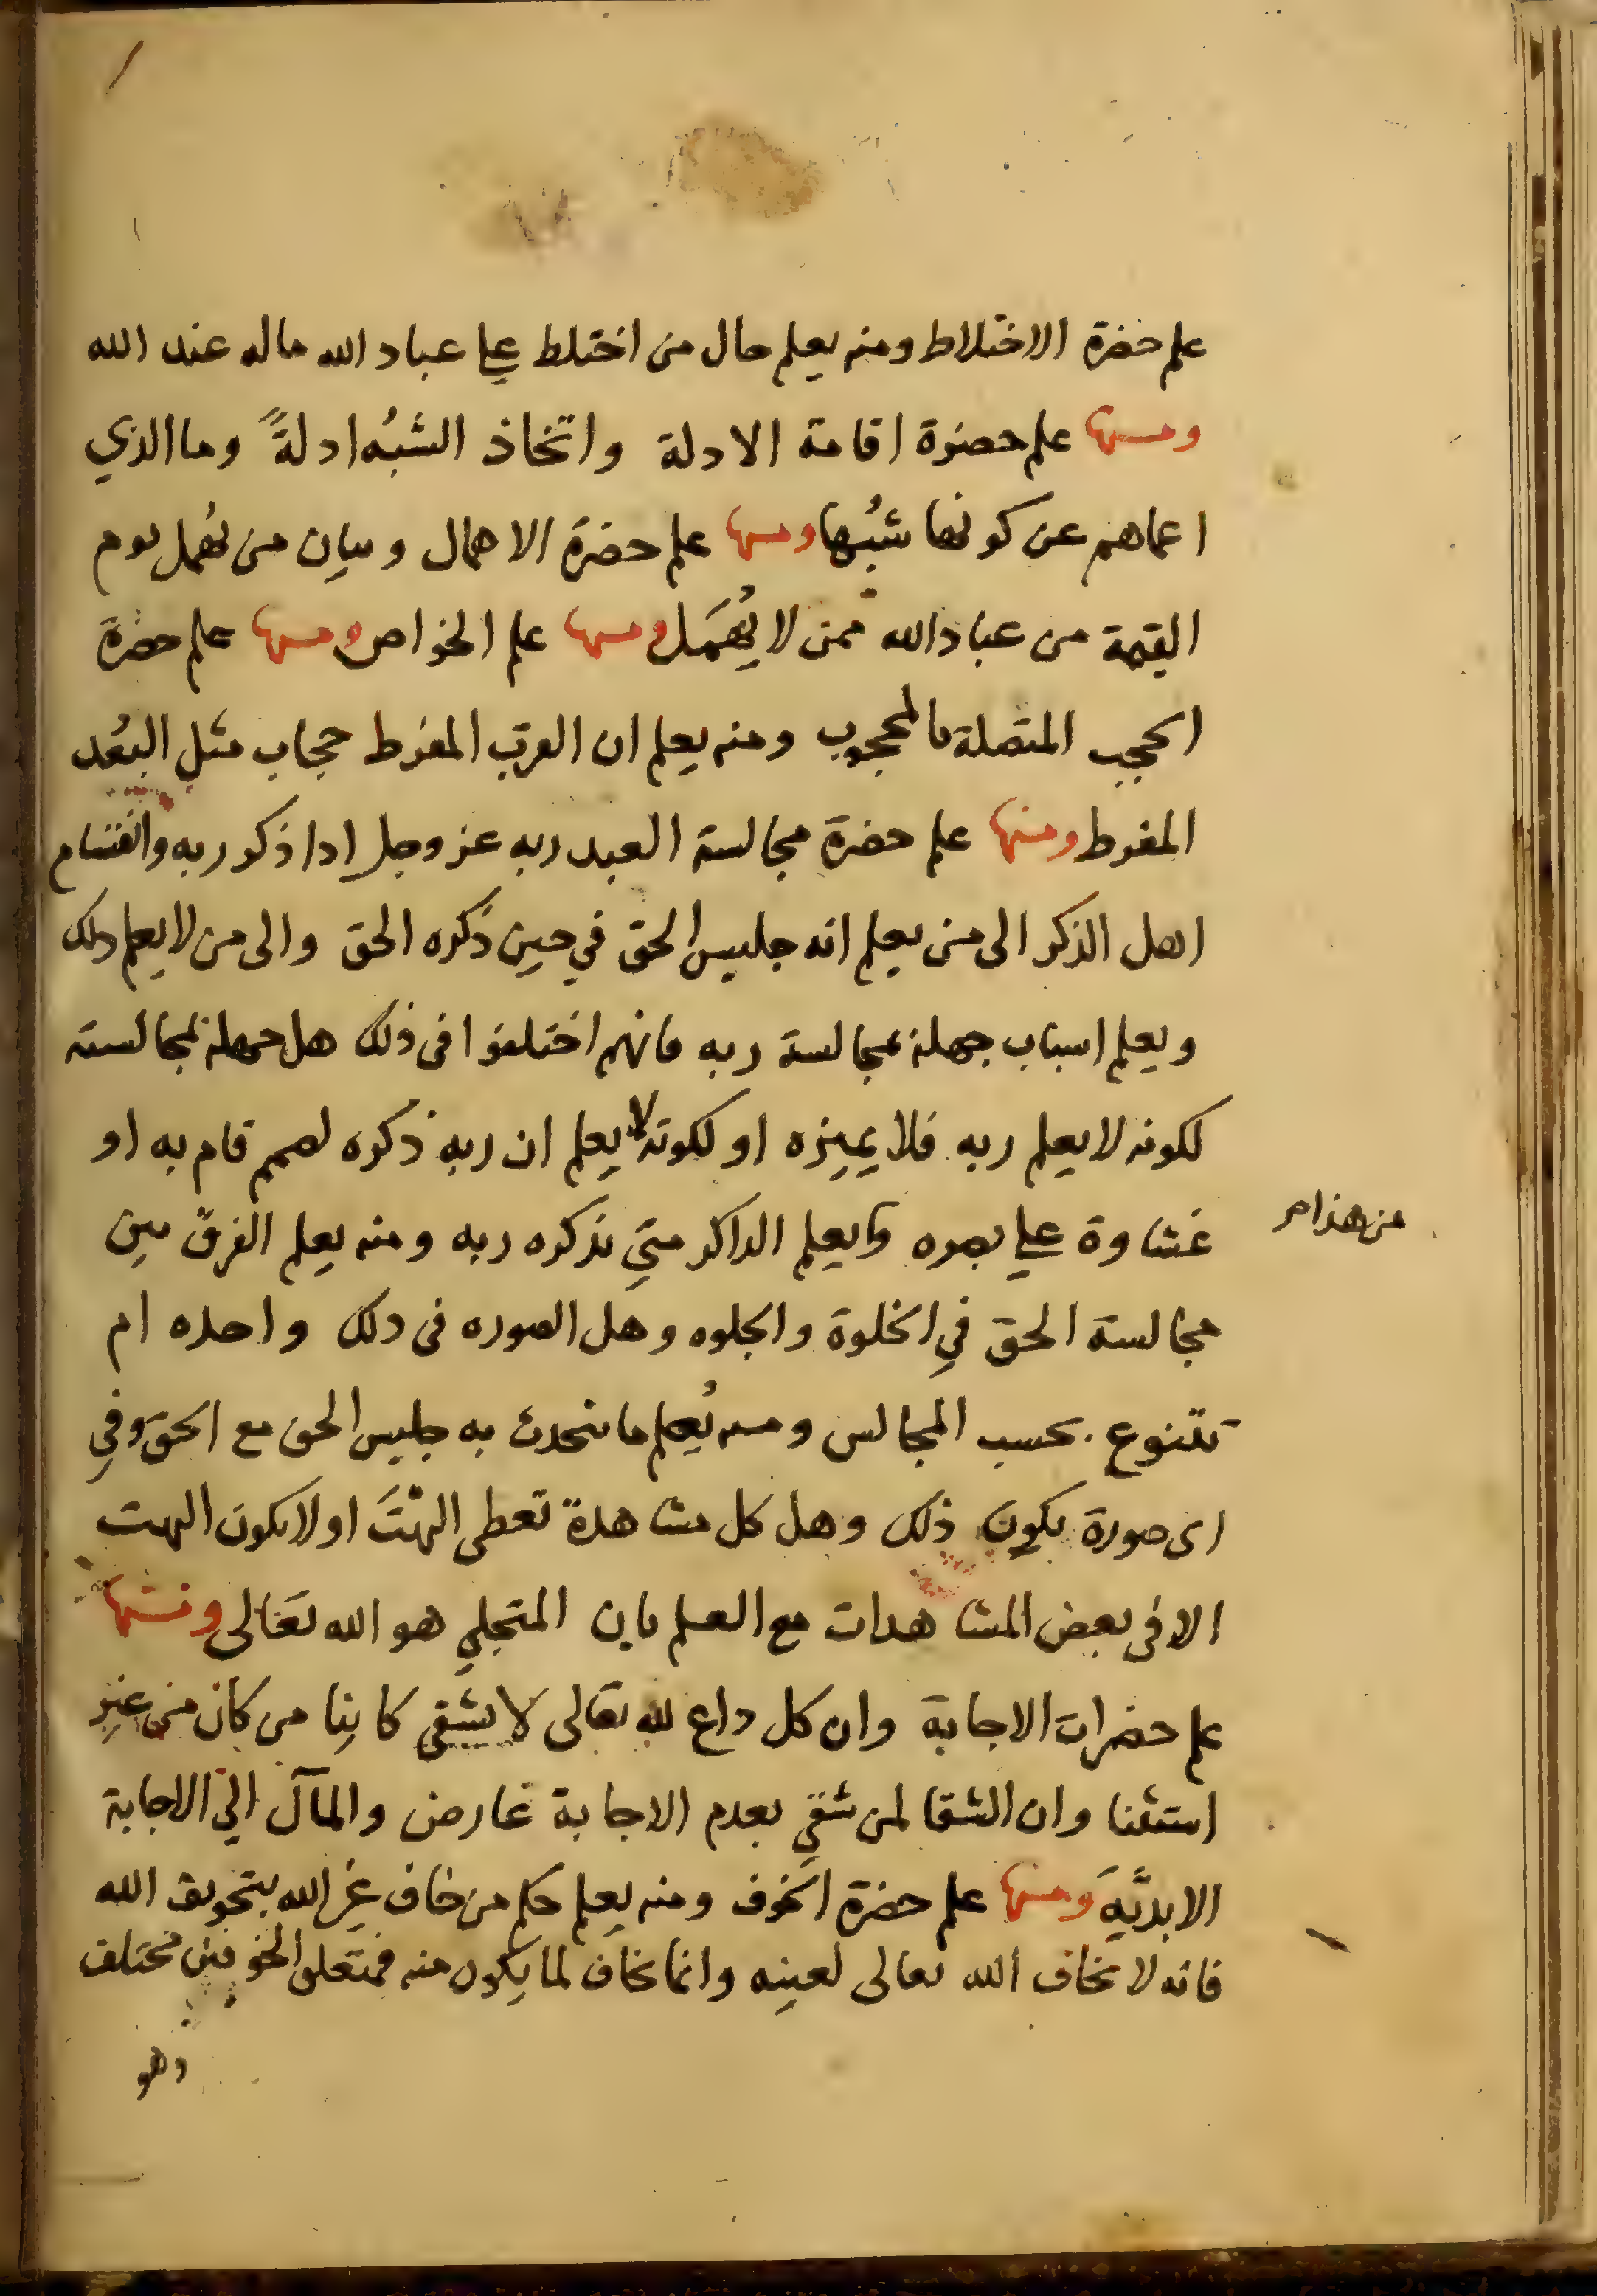 علم حضرة الاختلاط ومنه يعلم حال من اختلط علي عباد الله ماله عند الله
ومنها علم حضرة اقامة الادلة واتخاذ الشبُه ادلةً وما الذي
اعماهم عن كونها شبُها ومنها علم حضرة الاهمال وبيان من يُهمل يوم
القيمة من عباد الله ممن لا يُهمَل ومنها علم الخواص ومنها علم حضرة
الحجب المتصلة بالمحجوب ومنه يعلم ان القرب المفرط حجاب مثل البعُد
المفرط ومنها علم حضرة مجالسة العبد ربه عز وجل اذا ذكر ربه وانقسام
اهل الذكر الى من يعلم انه جليس الحق في حين ذكره الحق والى من لا يعلم ذلك
ويعلم اسباب جهله بمجالسة ربه فانهم اختلفوا في ذلك هل جهله بمجالسته
لكونه لا يعلم ربه فلا يميزه او لكونه لا يعلم ان ربه ذكره لصمم قام به او
غشاوة علي بصره ويعلم الذاكر متي يذكره ربه ومنه يعلم الفرق بين
من هذا
مجالسة الحق في الخلوة والجلوه وهل الصوره في ذلك واحده ام
تتنوع بحسب المجالس ومنه يُعلم ما يتحدث به جليس الحق مع الحق وفي
اى صورة يكون ذلك وهل كل مشاهدة تعطى البهْتَ او لا يكون البهت
الا في بعض المشاهدات مع العلم بان المتجلي هو الله تعالى ومنها
علم حضرات الاجابة وان كل داع لله تعالى لا يشقى كاينا من كان من غير
استثنا وان الشقا لمن شقي بعدم الاجابة عارض والمآل الي الاجابة
الابديَّه ومنها علم حضرة الخوف ومنه يعلم حكم من خاف غير الله بتخويف الله
فانه لا يخاف الله تعالى لعينه وانما يخاف لما يكون منه فمتعلق الخوفين مختلف
وهو